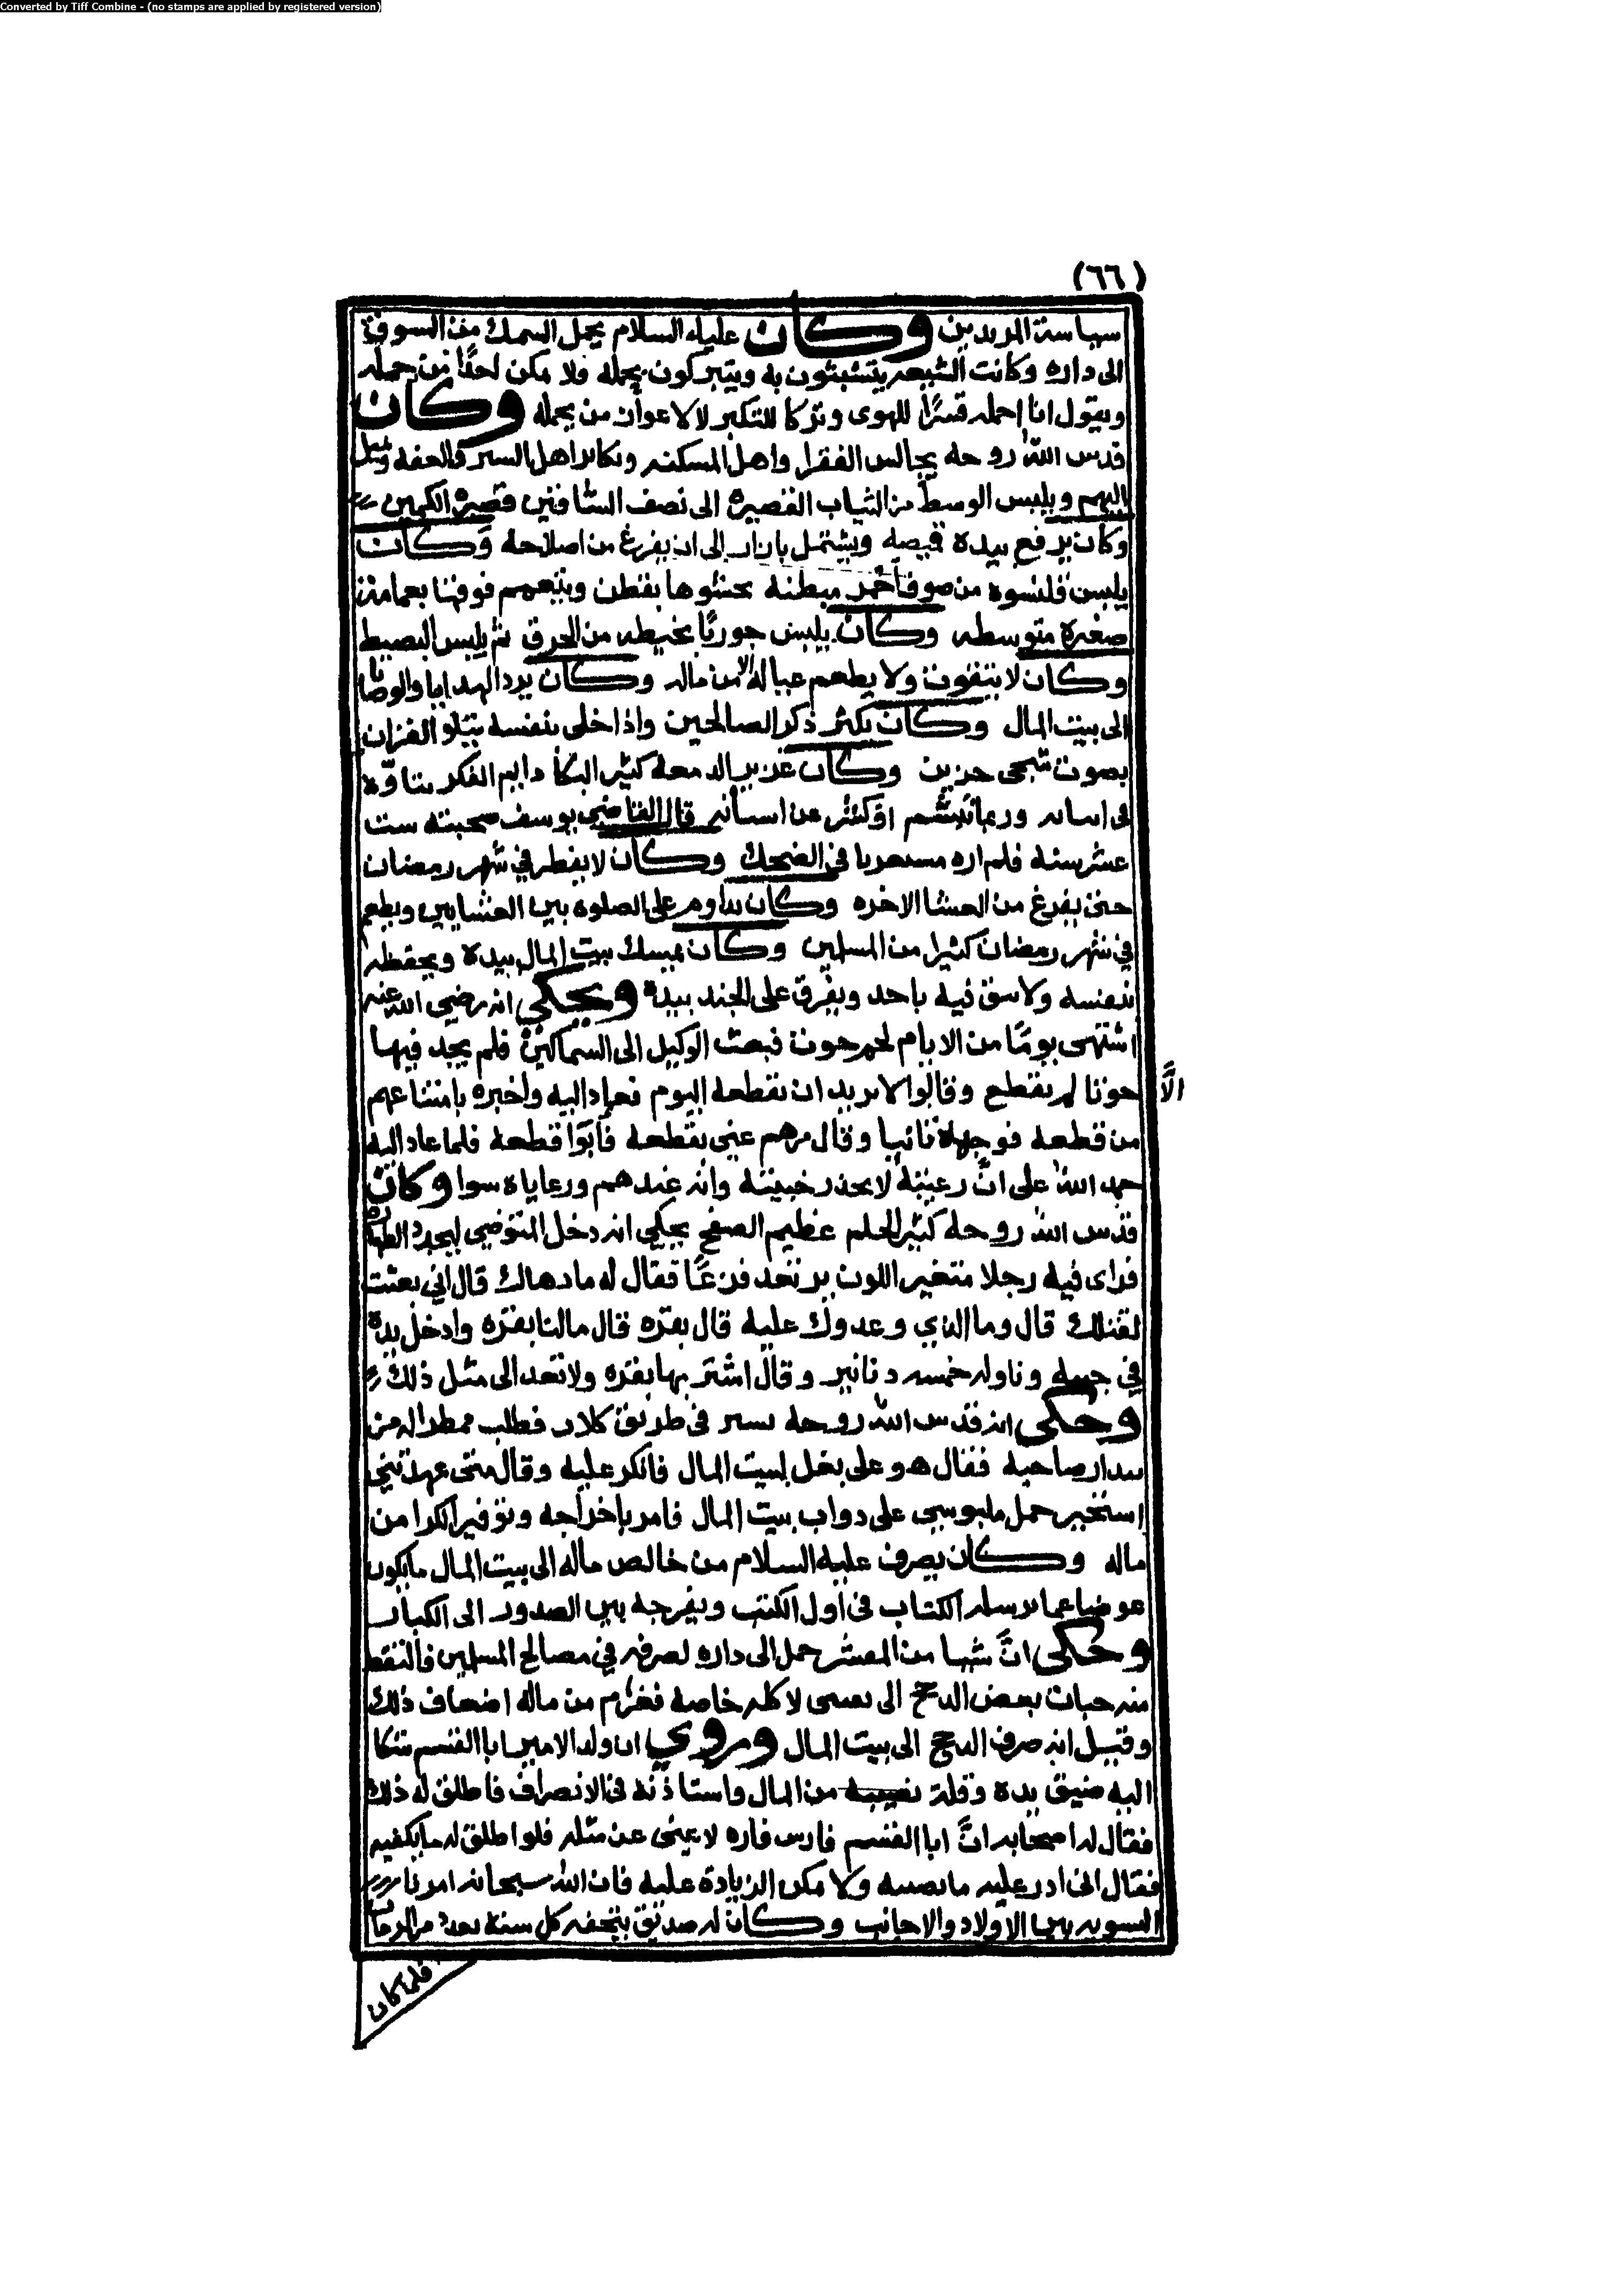 Converted by Tiff Combine - (no stamps are applied by registered version)
(٦٦)
سياسة المريدين وكان عليه السلام يحمل السمك من السوق
الى داره وكانت الشيعه يتشبثون به ويتبركون بحمله فلا يمكن احدًا من حمله
ويقول انا احمله قسرًا للهوى وتركا للتكبر لا لاعوان من يحمله وكان
قدس الله روحه يجالس الفقرا واهل المسكنه ويكاثر اهل الستر والعفه ويميل
اليهم ويلبس الوسط من الثياب القصيره الى نصف الساقين قصيره الكمين
وكان يرقع بيده قميصه ويشتمل بازار الى ان يفرغ من اصلاحه وكان
يلبس قلنسوه من صوف احمر مبطنه محشوها بقطن ويتعمم فوقها بعمامة
صغيره متوسطه وكان يلبس جوربًا يخيطه من الخرق ثم يلبس
وكان لا يتقوت ولا يطعم عياله الا من ماله وكان يرد الهدايا والوصايا
الى بيت المال وكان يكثر ذكر الصالحين واذا خلى بنفسه يتلو القران
بصوت شجى حزين وكان غزير الدمعه كثير البكا دايم الفكر يتاوّه
فى اساىه وربما تبسّم او كشر عن اسنانه قال القاضي يوسف صحبته ست
عشر سنه فلم اره مستغربا في الضحك وكان لا يفطر في شهر رمضان
حتى يفرغ من العشا الاخره وكان يداوم على الصلوه بين العشايين ويطعم
في شهر رمضان كثيرا من المسلمين وكان يمسك بيت المال بيده ويحفظه
بنفسه ولا يثق فيه باحد ويفرق على الجند بيده ويحكي انه رضي الله عنه
اشتهى يومًا من الايام لحم حوت فبعث الوكيل الى السماكين فلم يجد فيها
الَّا
حوتا لم يقطع وقالوا لا نريد ان نقطعه اليوم فعاد اليه واخبره بامتناعهم
من قطعه فوجهه ثانيا وقال مرهم عني بقطعه فأبوا قطعه فلما عاد اليه
حمد الله على انَّ رعيته لا يحذر خيفته وانه عندهم ورعاياه سوا وكان
قدس الله روحه كثير الحلم عظيم الصفح يحكي انه دخل المتوضي ليجدد الطهاره
فراى فيه رجلا متغير اللون يرتعد فزعًا فقال له ما دهاك قال اني بعثت
لقتلك قال وما الذي وعدوك عليه قال بقره قال ما لنا بقره وادخل يده
في جيبه وناوله خمسه دنانير وقال اشتر بها بقره ولا تعد الى مثل ذلك
وحكى انه قدس الله روحه سير فى طريق كلار فطلب ممطرا له من
صاحبه فقال هو على بغل لبيت المال فانكر عليه وقال متى عهدتني
استخير حمل ملبوسي على دواب بيت المال فامر باخراجه وتوفير الكرا من
ماله وكان يصرف عليه السلام من خالص ماله الى بيت المال ما يكون
عوضا عما يرسله الكتاب فى اول الكتب ويفرجه بين الصدور الى الكبار
وحكى انَّ شيا من المعشر حمل الى داره لصرفه في مصالح المسلمين فالتقط
منه حبات بعض الدجج الى لاكله خاصه فغرم من ماله اضعاف ذلك
وقيل انه صرف الدجج الى بيت المال وروي ان ولد الامير ابا القسم شكا
اليه ضيق يده وقلة نصيبه من المال واستاذنه فى الانصراف فأطلق له ذلك
فقال له اصحابه انَّ ابا القسم فارس فاره لا يغنى عن مثله فلو اطلق له ما يكفيه
فقال انى ادر عليه ما نصيبه ولا يمكن الزيادة عليه فان الله سبحانه امرنا
التسويه بين الاولاد والاجانب وكان له صديق يتحفه كل سنة
فلما كان